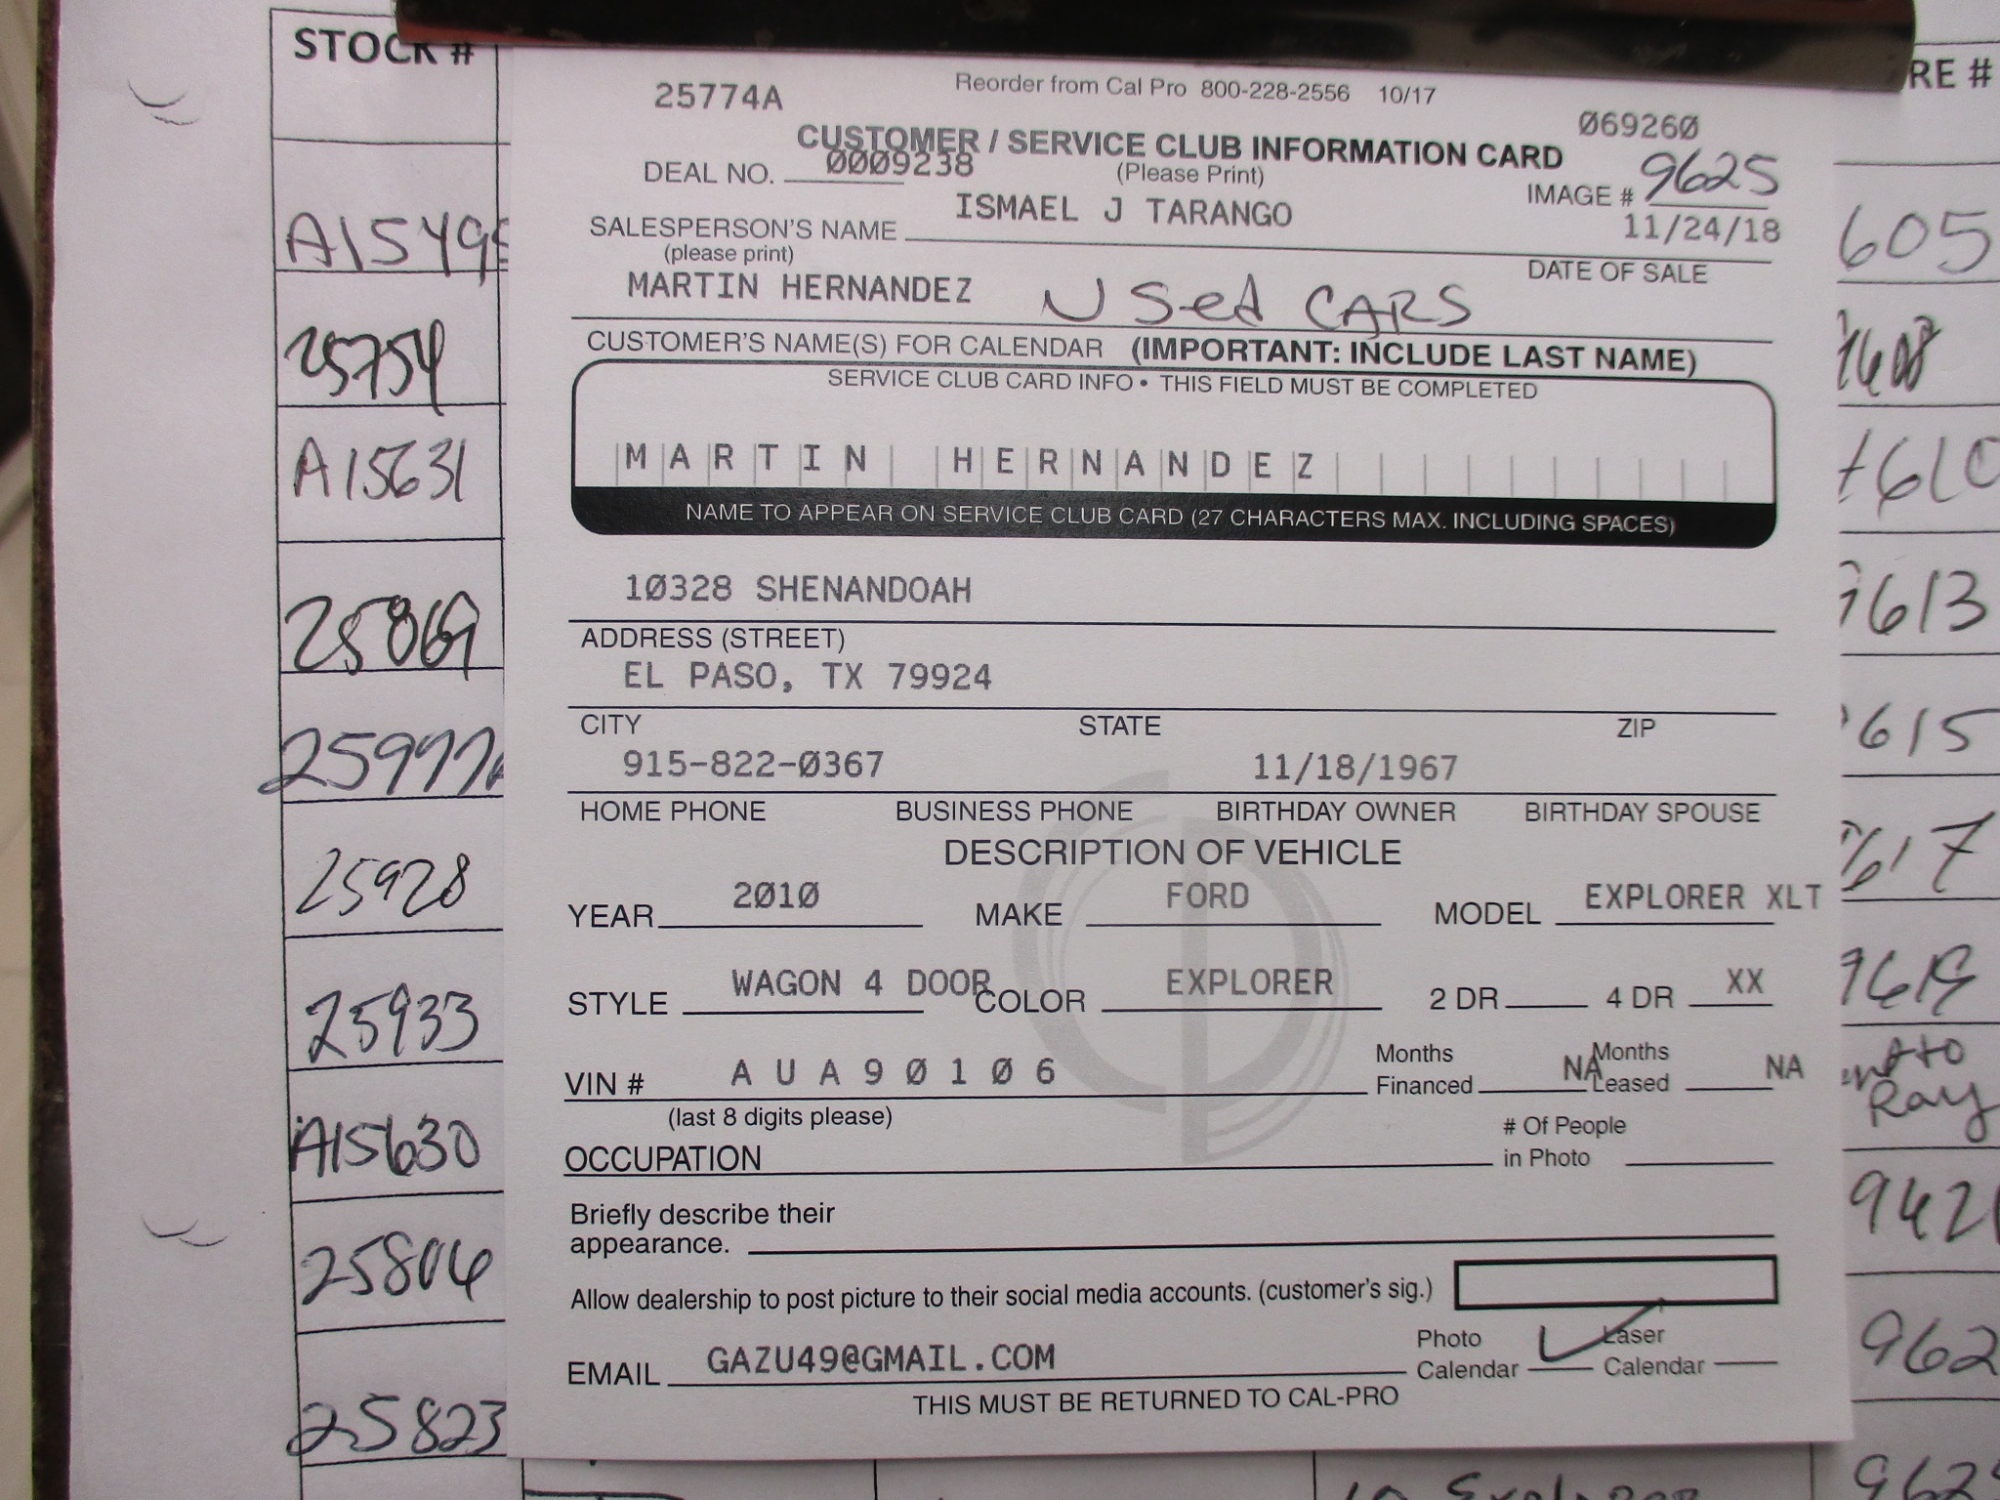 STOCK #
RE #
A1549
25754
A15631
25869
25977A
25928
25933
A15630
25804
25823
25774A
Reorder from Cal Pro 800-228-2556 10/17
069260
CUSTOMER / SERVICE CLUB INFORMATION CARD
DEAL NO. 0009238
(Please Print)
IMAGE # 9625
SALESPERSON'S NAME ISMAEL J TARANGO
11/24/18
(please print)
DATE OF SALE
MARTIN HERNANDEZ Used CARS
CUSTOMER'S NAME(S) FOR CALENDAR (IMPORTANT: INCLUDE LAST NAME)
SERVICE CLUB CARD INFO • THIS FIELD MUST BE COMPLETED
MARTIN HERNANDEZ
NAME TO APPEAR ON SERVICE CLUB CARD (27 CHARACTERS MAX. INCLUDING SPACES)
10328 SHENANDOAH
ADDRESS (STREET)
EL PASO, TX 79924
CITY STATE ZIP
915-822-0367 11/18/1967
HOME PHONE BUSINESS PHONE BIRTHDAY OWNER BIRTHDAY SPOUSE
DESCRIPTION OF VEHICLE
YEAR 2010 MAKE FORD MODEL EXPLORER XLT
STYLE WAGON 4 DOOR COLOR EXPLORER 2 DR 4 DR XX
VIN # A U A 9 0 1 0 6 Months Financed NA Months Leased NA
(last 8 digits please)
OCCUPATION # Of People in Photo
Briefly describe their
appearance.
Allow dealership to post picture to their social media accounts. (customer's sig.)
EMAIL GAZU49@GMAIL.COM Photo Calendar Laser Calendar
THIS MUST BE RETURNED TO CAL-PRO
605
9608
610
9613
9615
9617
9619
Ray
9421
962
962